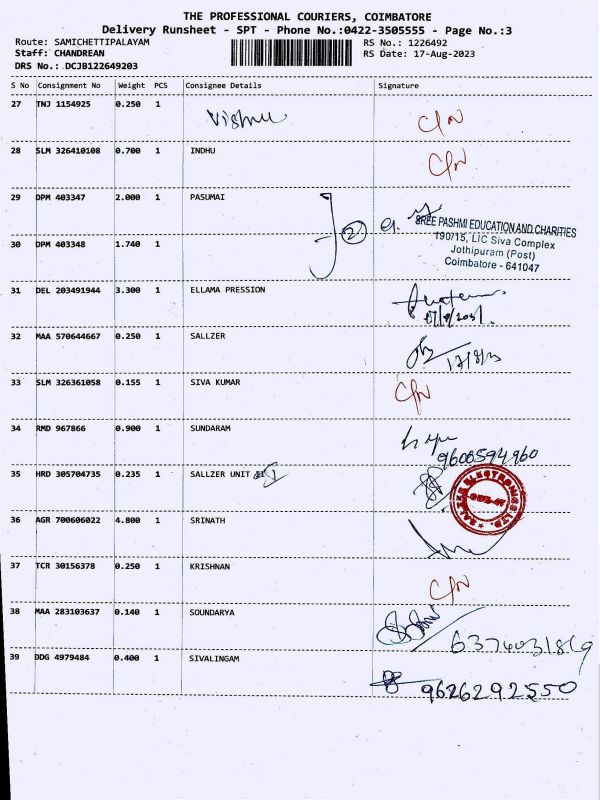 THE PROFESSIONAL COURIERS, COIMBATORE
Delivery Runsheet - SPT - Phone No.:0422-3505555 - Page No.:3
Route: SAMICHETTIPALAYAM RS No.: 1226492
Staff: CHANDREAN RS Date: 17-Aug-2023
DRS No.: DCJB122649203
S No Consignment No Weight PCS Consignee Details Signature
27 TNJ 1154925 0.250 1 Vishnu
28 SLM 326410108 0.700 1 INDHU
29 DPM 403347 2.000 1 PASUMAI
SREE PASHMI EDUCATION AND CHARITIES
190/15, LIC Siva Complex
Jothipuram (Post)
Coimbatore - 641047
2
30 DPM 403348 1.740 1
31 DEL 203491944 3.300 1 ELLAMA PRESSION
32 MAA 570644667 0.250 1 SALLZER
17/8/23
33 SLM 326361058 0.155 1 SIVA KUMAR
34 RMD 967866 0.900 1 SUNDARAM
9600594960
35 HRD 305704735 0.235 1 SALLZER UNIT
SALZER ELECTRONICS LTD.
CBE-47
36 AGR 700606022 4.800 1 SRINATH
37 TCR 30156378 0.250 1 KRISHNAN
38 MAA 283103637 0.140 1 SOUNDARYA
6374031869
39 DDG 4979484 0.400 1 SIVALINGAM
9626292550